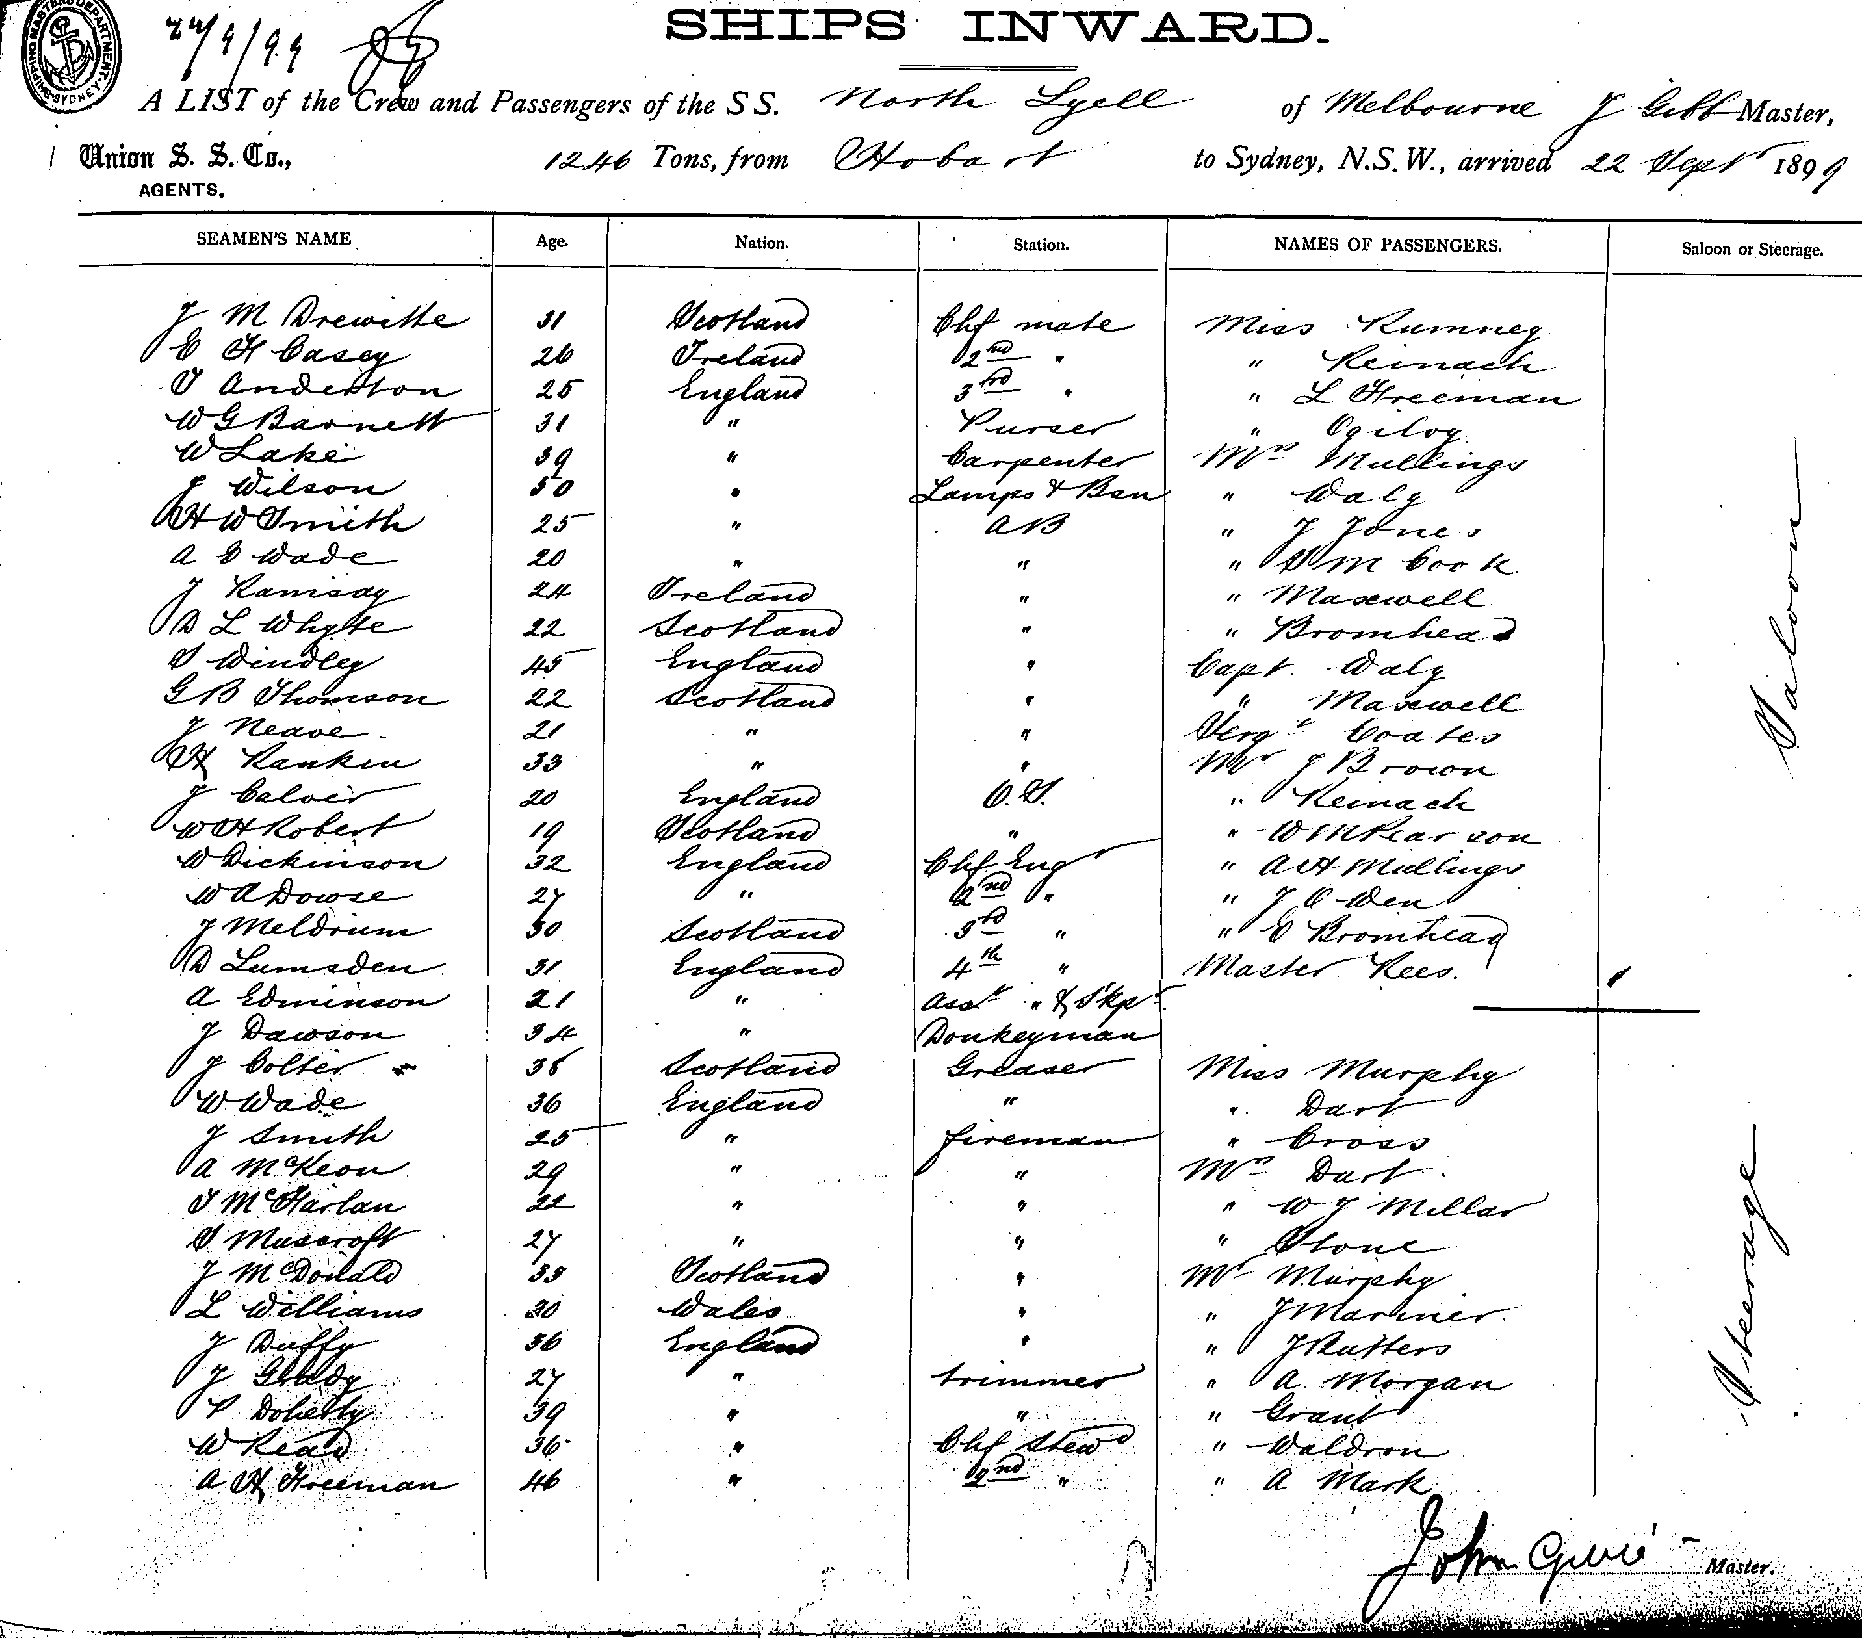 SHIPPING MASTER'S DEPARTMENT SYDNEY
22/9/99
SHIPS INWARD.
A LIST of the Crew and Passengers of the SS. North Lyell of Melbourne J Gibb Master,
Union S. S. Co., 1246 Tons, from Hobart to Sydney, N.S.W., arrived 22 Sept 1899
AGENTS.
SEAMEN'S NAME Age. Nation. Station. NAMES OF PASSENGERS. Saloon or Steerage.
J M Drewitte 31 Scotland Chf mate Miss Rumney
E H Casey 26 Ireland 2nd " " Reinach
T Anderton 25 England 3rd " " L Freeman
W G Barnett 31 " Purser " Ogilvy
W Lake 39 " Carpenter Mrs Mullings
J Wilson 50 " Lamps & Bsn " Waly
H W Smith 25 " AB " J Jones
A E Wade 20 " " " S M Cook
J Ramsay 24 Ireland " " Maxwell
D L Whyte 22 Scotland " " Bromhead
S Windley 45 England " Capt. Waly
G B Thomson 22 Scotland " " Maxwell
J Neave 21 " " Sergt Coates
H Rankin 33 " " Mr J Brown
J Calver 20 England O.S. " Reinach
W H Robert 19 Scotland " " W M Pearson
W Dickinson 32 England Chf Engr " A H Mullings
W A Dowse 27 " 2nd " " J O Wen
J Meldrum 30 Scotland 3rd " " E Bromhead
D Lumsden 31 England 4th " Master Rees.
A Edminson 21 " Asst " & Skpr
J Dawson 34 " Donkeyman
J Colter 35 Scotland Greaser Miss Murphy
W Wade 36 England " " Dart
J Smith 25 " fireman " Cross
A McKeon 29 " " Mrs Dart
T McHarlan 22 " " " W J Millar
S Muscroft 27 " " " Stone
J McDonald 35 Scotland " Mr Murphy
L Williams 30 Wales " " J Mariner.
J Duffy 36 England " " J Rutters
J Grady 27 " trimmer " A Morgan
P Doherty 39 " " " Grant
W Read 36 " Chf Stewd " Waldron
A H Freeman 46 " 2nd " " A Mark
Saloon
Steerage
John Gibb Master.